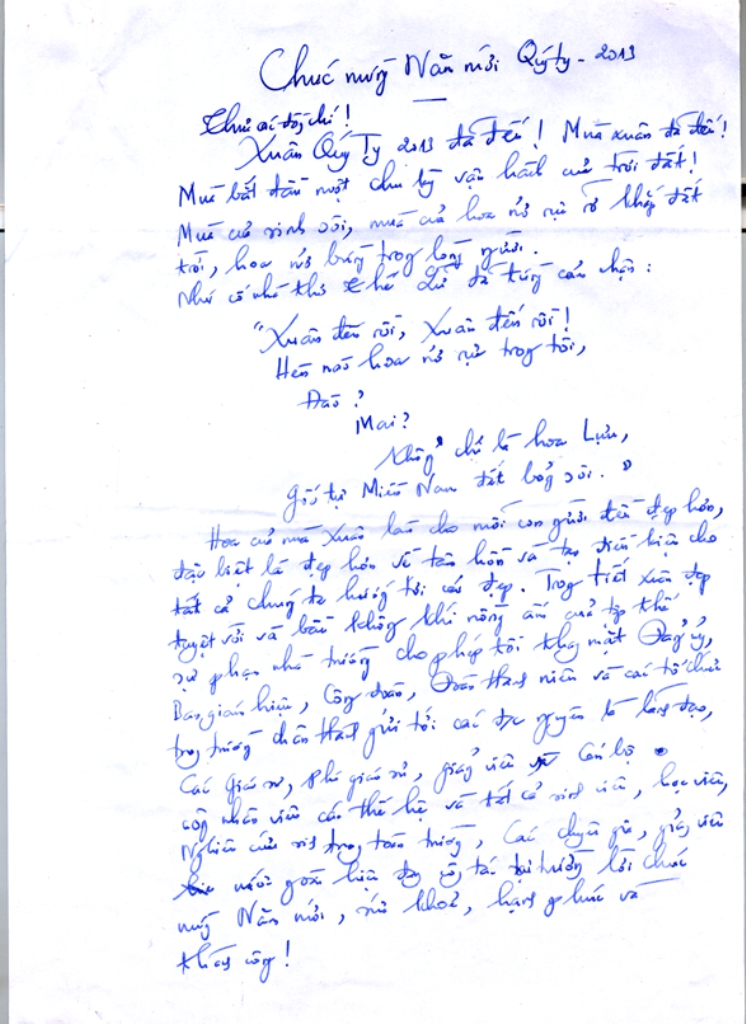 Chúc mừng Năm mới Quý Tỵ - 2013
Thưa các đồng chí!
Xuân Quý Tỵ 2013 đã đến! Mùa xuân đã đến!
Mùa bắt đầu một chu kỳ vận hành của trời đất!
Mùa của sinh sôi, mùa của hoa nở rực rỡ khắp đất
trời, hoa nở bừng trong lòng người.
Như cố nhà thơ Thế Lữ đã từng cảm nhận:
"Xuân đến rồi, Xuân đến rồi!
Hến nào hoa nở rực trong tôi,
Đào?
Mai?
Không chỉ là hoa Lựu,
Gốc tự Miền Nam đất bỏng sôi."
Hoa của mùa Xuân làm cho mỗi con người đều đẹp hơn,
đặc biệt là đẹp hơn về tâm hồn và tạo điều kiện cho
tất cả chúng ta hướng tới cái đẹp. Trong tiết xuân đẹp
tuyệt vời và bầu không khí nồng ấm của tập thể
sư phạm nhà trường cho phép tôi thay mặt Đảng ủy,
Ban giám hiệu, Công đoàn, Đoàn thanh niên và các tổ chức
trong trường chân thành gửi tới các đ/c nguyên là lãnh đạo,
Các Giáo sư, phó giáo sư, giảng viên Cán bộ
công nhân viên các thế hệ và tất cả sinh viên, học viên,
Nghiên cứu sinh trong toàn trường, Các chuyên gia, giảng viên
nước ngoài hiện đang công tác tại trường lời chúc
mừng Năm mới, sức khoẻ, hạnh phúc và
thành công!